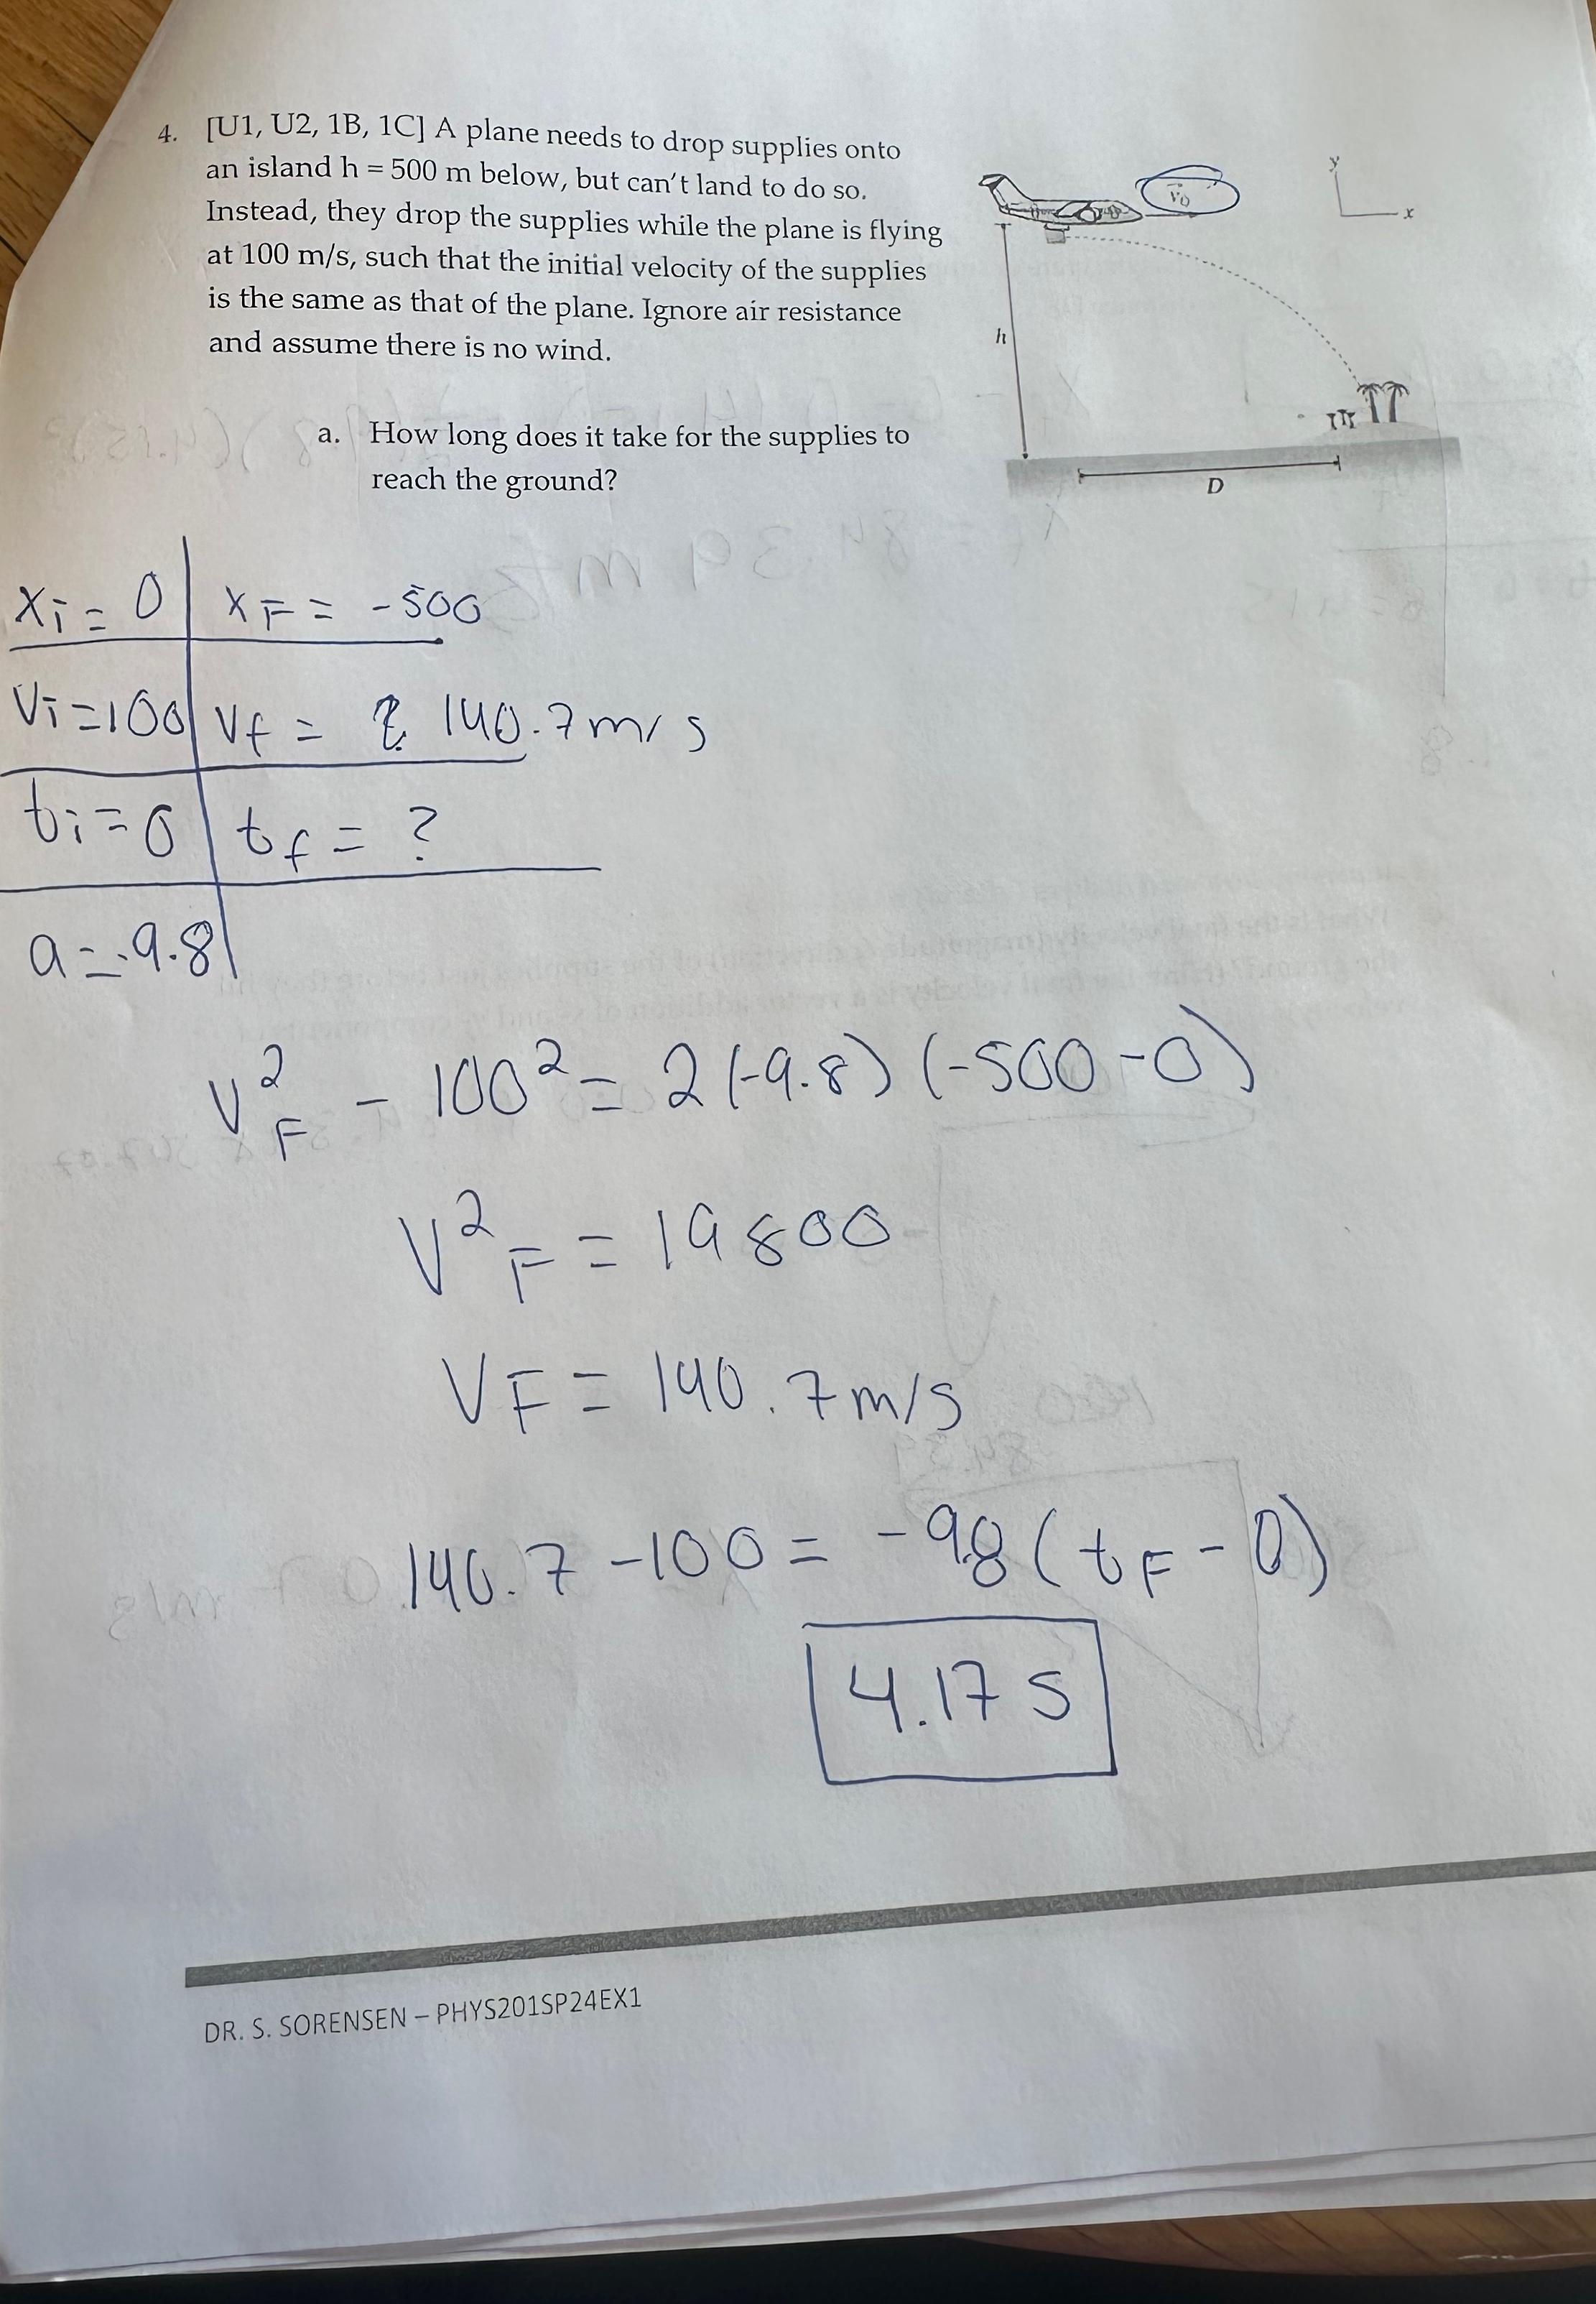 4. [U1, U2, 1B, 1C] A plane needs to drop supplies onto
an island h = 500 m below, but can't land to do so.
Instead, they drop the supplies while the plane is flying
at 100 m/s, such that the initial velocity of the supplies
is the same as that of the plane. Ignore air resistance
and assume there is no wind.
v₀
y
x
h
D
a. How long does it take for the supplies to
reach the ground?
xi = 0 xF = -500
Vi = 100 Vf = ? 140.7 m/s
ti = 0 tf = ?
a = -9.8
V²F - 100² = 2(-9.8)(-500-0)
V²F = 19800
VF = 140.7 m/s
140.7 - 100 = -9.8(tF - 0)
4.17 s
DR. S. SORENSEN – PHYS201SP24EX1